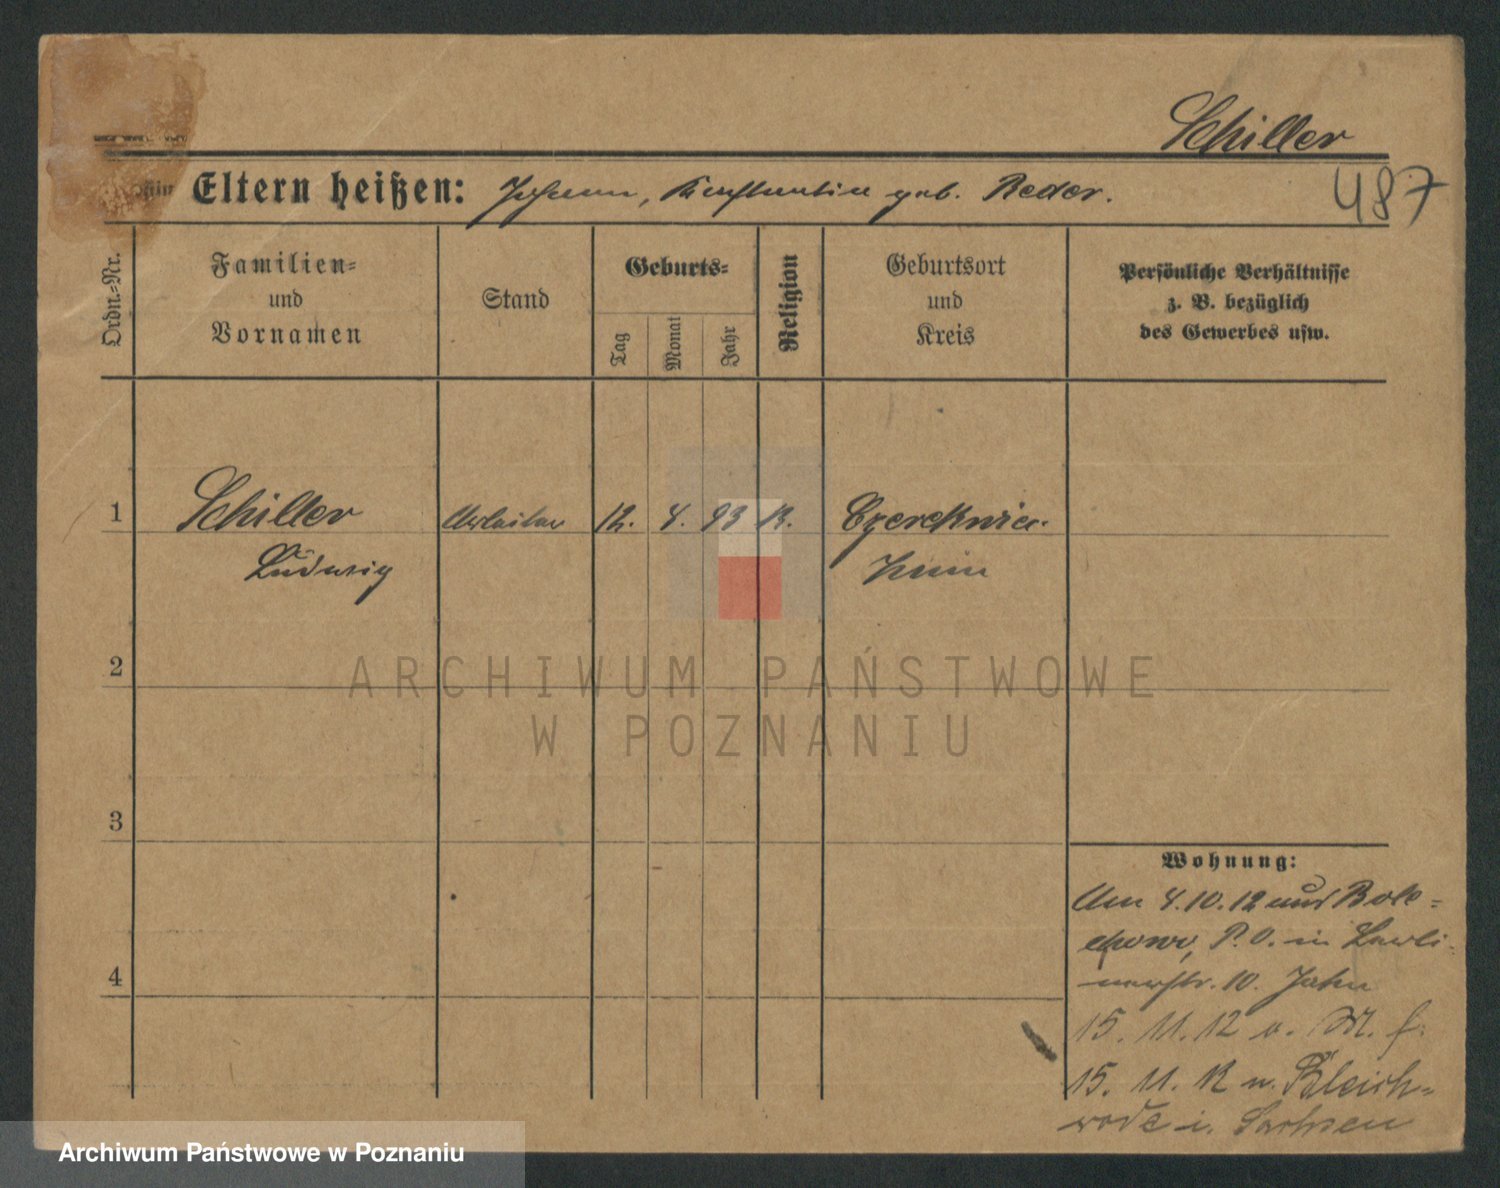 Schiller
487
Eltern heißen: Johann, Konstantia geb. Reder.
Ordn.=Nr.
Familien=
und
Vornamen
Stand
Geburts=
Tag
Monat
Jahr
Religion
Geburtsort
und
Kreis
Persönliche Verhältnisse
z. B. bezüglich
des Gewerbes usw.
1 Schiller Arbeiter 12. 4. 93 K. Czerekwica
Ludwig Znin
2
3
4
Wohnung:
Am 4.10.12 aus Bole=
chowo, P.O. in
str. 10. Jahn
15. 11. 12 a. M. f.
15. 11. 12 n. Bleich=
rode i. Sachsen
ARCHIWUM PAŃSTWOWE
W POZNANIU
Archiwum Państwowe w Poznaniu